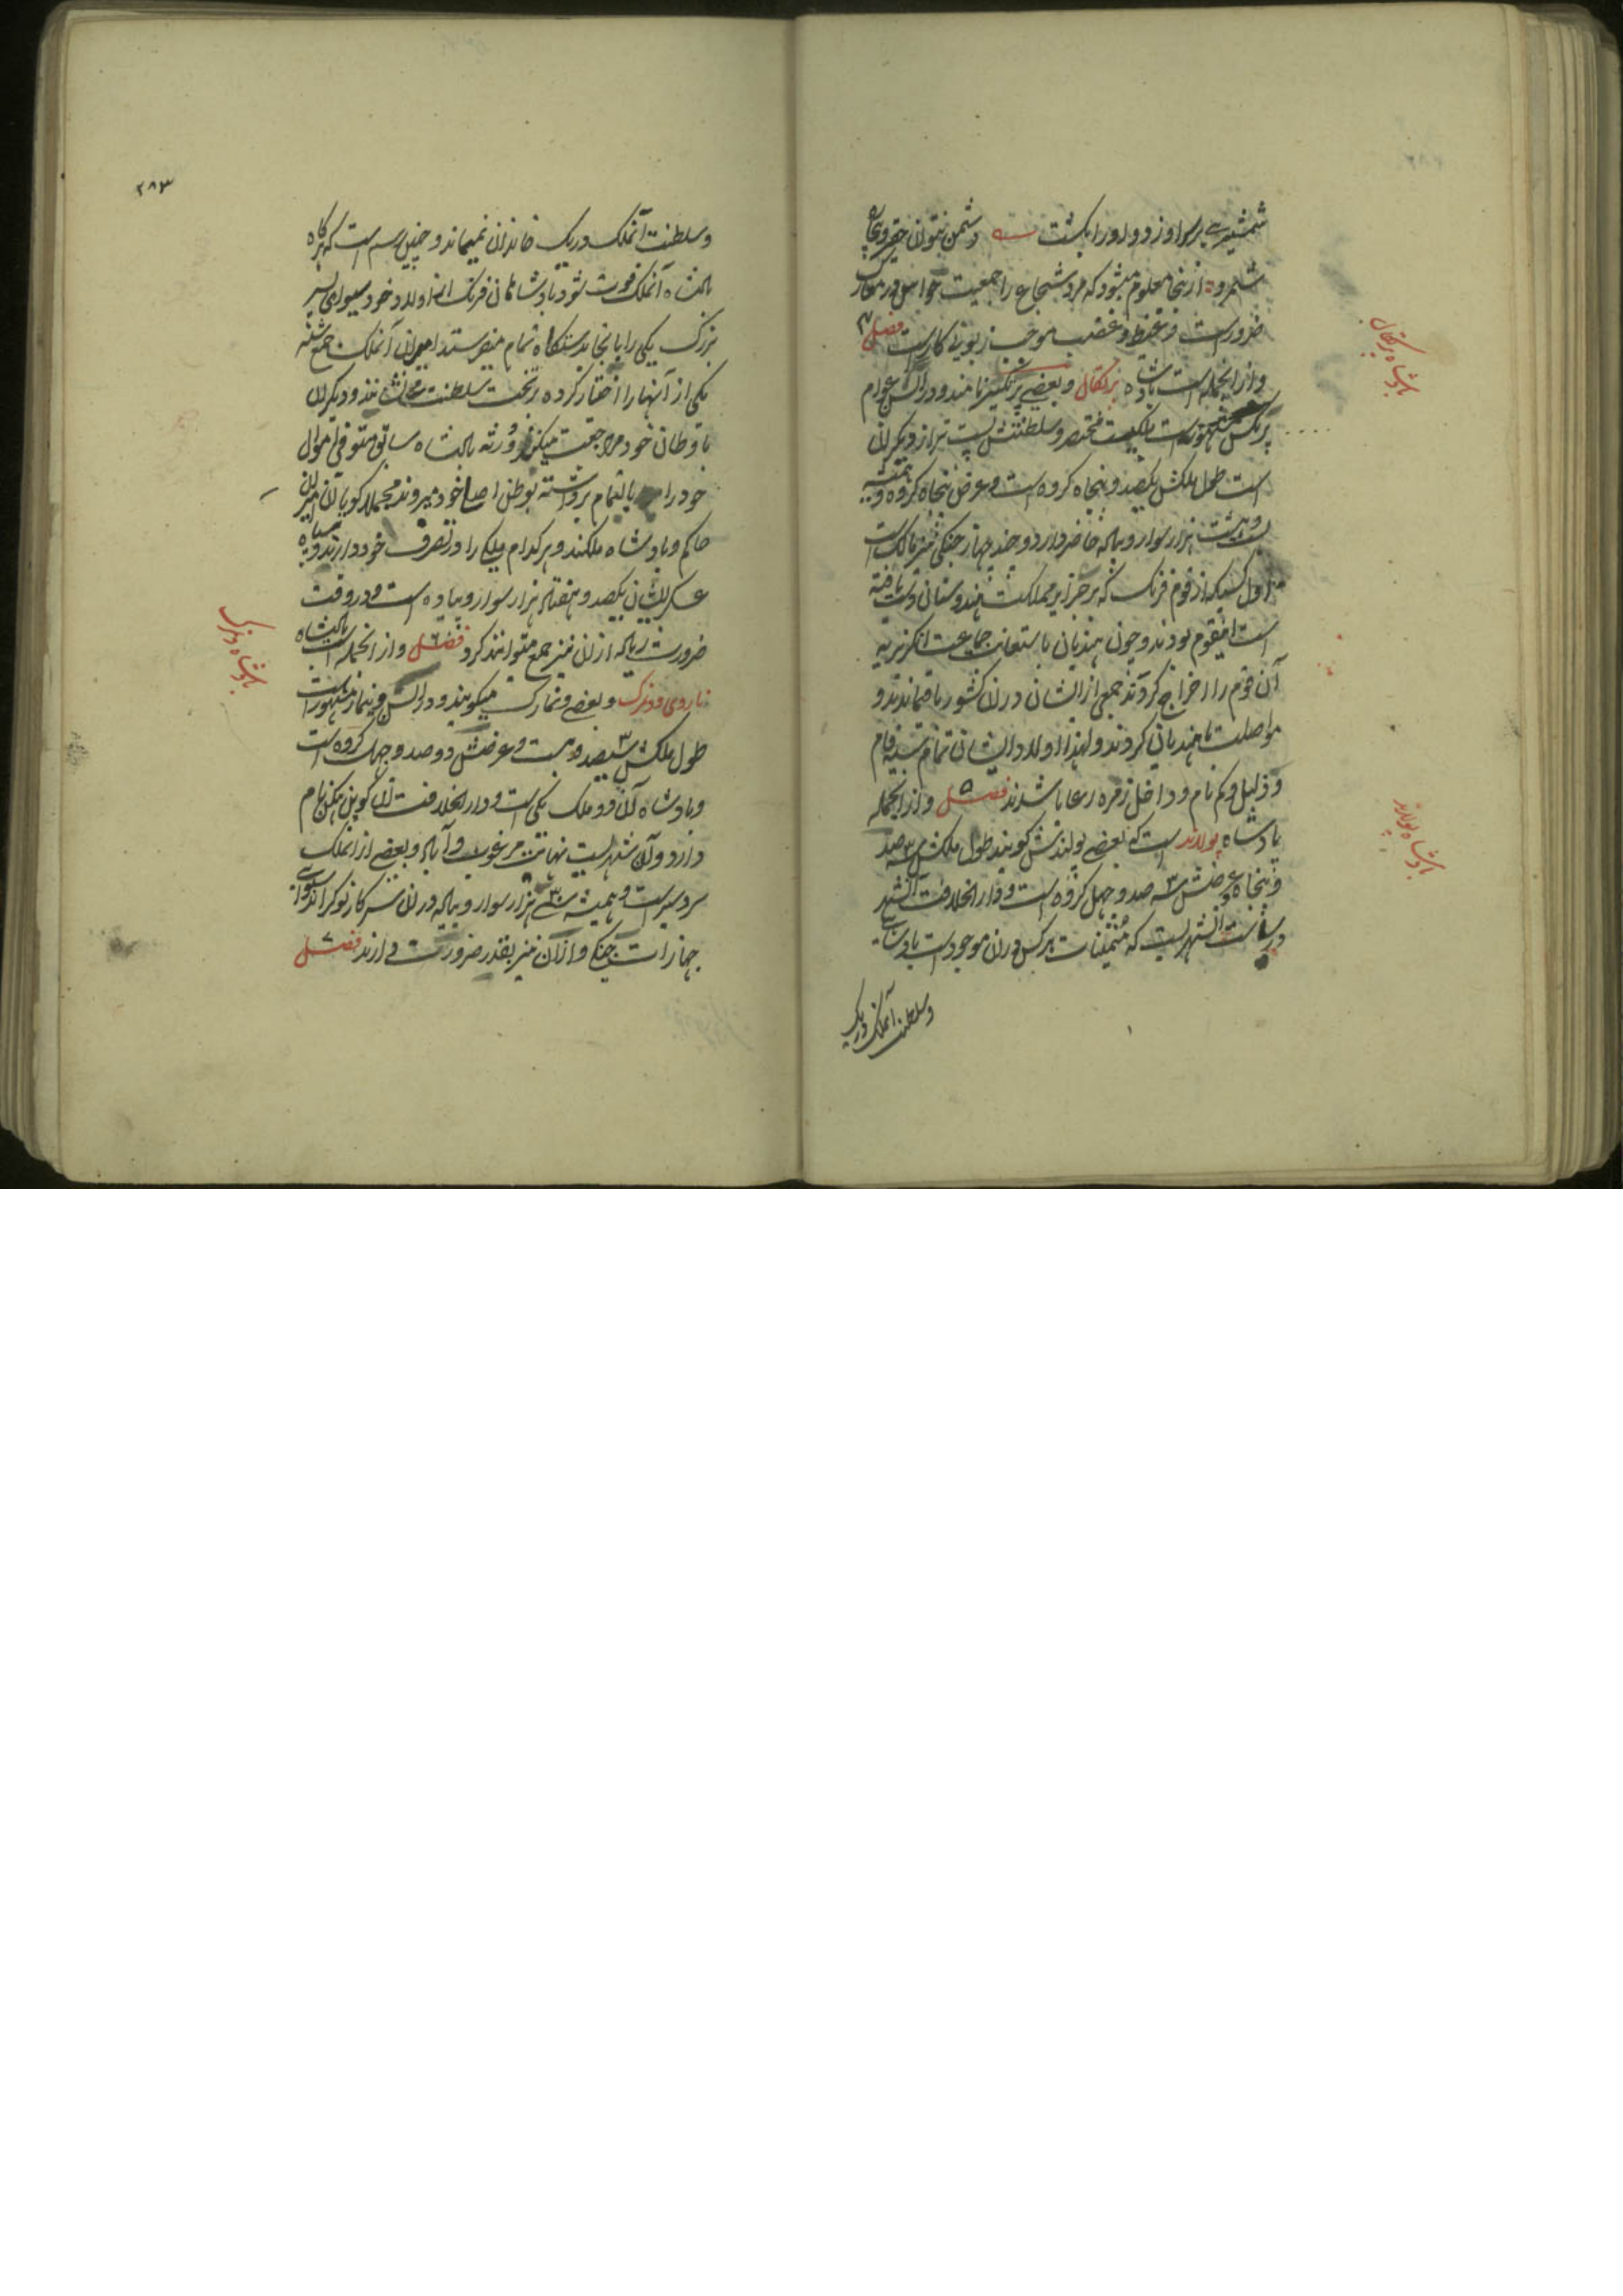 شمشیری بر سر او زد و او را بکشت دشمن نتوان حقیر و بیچاره
شمرد ازینجا معلوم میشود که مرد شجاع را جمعیت حواس در معارک
ضرورست و غیظ و غضب موجب زبونی کارست فصل ۴
و از انجمله است بادشاه پرتکال و بعضی پرتکیز نامند و در السن عوام
است طول ملکش یکصد و پنجاه کروه است و عرض پنجاه کروه و همیشه
بیست هزار سوار و پیاده حاضر دارد و چند جهاز جنکی نیز مالک است
اول کسیکه از قوم فرنک که بر جزایر مملکت هندوستان دست یافته
است اینقوم بودند و چون هندیان باستعانت جماعت انکریزیه
آن قوم را اخراج کردند جمعی از ایشان در ان کشور باقیماندند و
مواصلت با هندیان کردند و لهذا اولاد ایشان تمام سیه فام
و ذلیل و کم نام و داخل زمره رعایا شدند فصل ۵ و از انجمله
بادشاه پولاند است که بعضی پولندش کویند طول ملکش سه صد
و پنجاه و عرضش سه صد و چهل کروه است و دار الخلافت آنشهر
و سلطنت آنملک در یک
بادشاه پرتکال
بادشاه پولاند
۲۸۳
و سلطنت آنملک در یک خاندان نمیماند و چنین رسم است که هر کاه
بادشاه آنملک فوت شود بادشاهان فرنک از اولاد خود سیوای پسر
بزرک یکی را بانجا بدستکاه تمام میفرستند امیران آنملک جمع شده
یکی از آنها را اختیار کرده بر تخت سلطنت مینشانند و دیکران
باوطان خود مراجعت میکنند و ورثه بادشاه سابق متوفی اموال
خود را بالتمام برداشته بوطن اصلی خود میروند مجملا کویا آن امیران
حاکم و بادشاه ملکند و هر کدام ملکی را در تصرف خود دارند و سپاه
عسکر ایشان یکصد و هفتاد هزار سوار و پیاده است و در وقت
ضرورت زیاده از ان نیز جمع میتوانند کرد فصل ۶ و از انجمله است بادشاه
ناروی و دنمرک و بعضی دنمارک میکویند و در السن دینمار مشهورست
طول ملکش سیصد و بیست و عرضش دو صد و چهل کروه است
و بادشاه آن دو ملک یکی است و دار الخلافت آن کوپن هیکن نام
دارد و آن شهریست نهایت مرغوب و آباد و بعضی از انملک
سردسیرست و همیشه سی هزار سوار و پیاده در ان سرکار نوکر اند سوای
جهازات جنکی و از آن نیز بقدر ضرورت دارند فصل ۷
بادشاه دنمرک